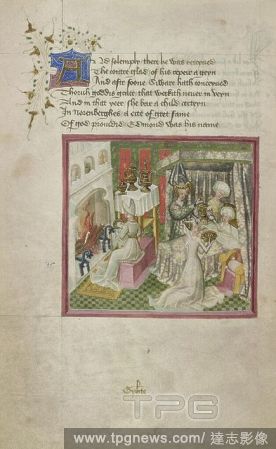 And solempny ther he was receyued
The contre glad of his repeir ageyn
And aftir soone Siware hath conceyued
Thoruh goddis grace that werkith neuer in veyn
And in that yeer she bar a child certeyn
In Norenberghe a cite of gret fame
Of god prouided Edmond was his name
TPG
www.tpgnews.com/達志影像